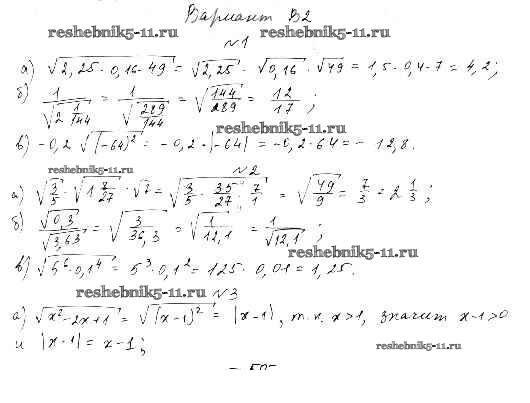 Вариант В2
reshebnik5-11.ru reshebnik5-11.ru
№1
а) √(2,25 · 0,16 · 49) = √2,25 · √0,16 · √49 = 1,5 · 0,4 · 7 = 4,2;
б) 1/√(2 1/144) = 1/√(289/144) = √(144/289) = 12/17;
reshebnik5-11.ru
в) -0,2 √((-64)²) = -0,2 · |-64| = -0,2 · 64 = -12,8.
reshebnik5-11.ru №2
а) √(3/5) · √(1 8/27) · √7 = √(3/5 · 35/27 · 7/1) = √(49/9) = 7/3 = 2 1/3;
б) √0,3/√3,63 = √(3/36,3) = √(1/12,1) = 1/√12,1;
в) √(5⁶ · 0,1⁴) = 5³ · 0,1² = 125 · 0,01 = 1,25.
reshebnik5-11.ru
reshebnik5-11.ru №3
а) √(x² - 2x + 1) = √((x - 1)²) = |x - 1|, т.к. x > 1, значит x - 1 > 0
и |x - 1| = x - 1;
reshebnik5-11.ru